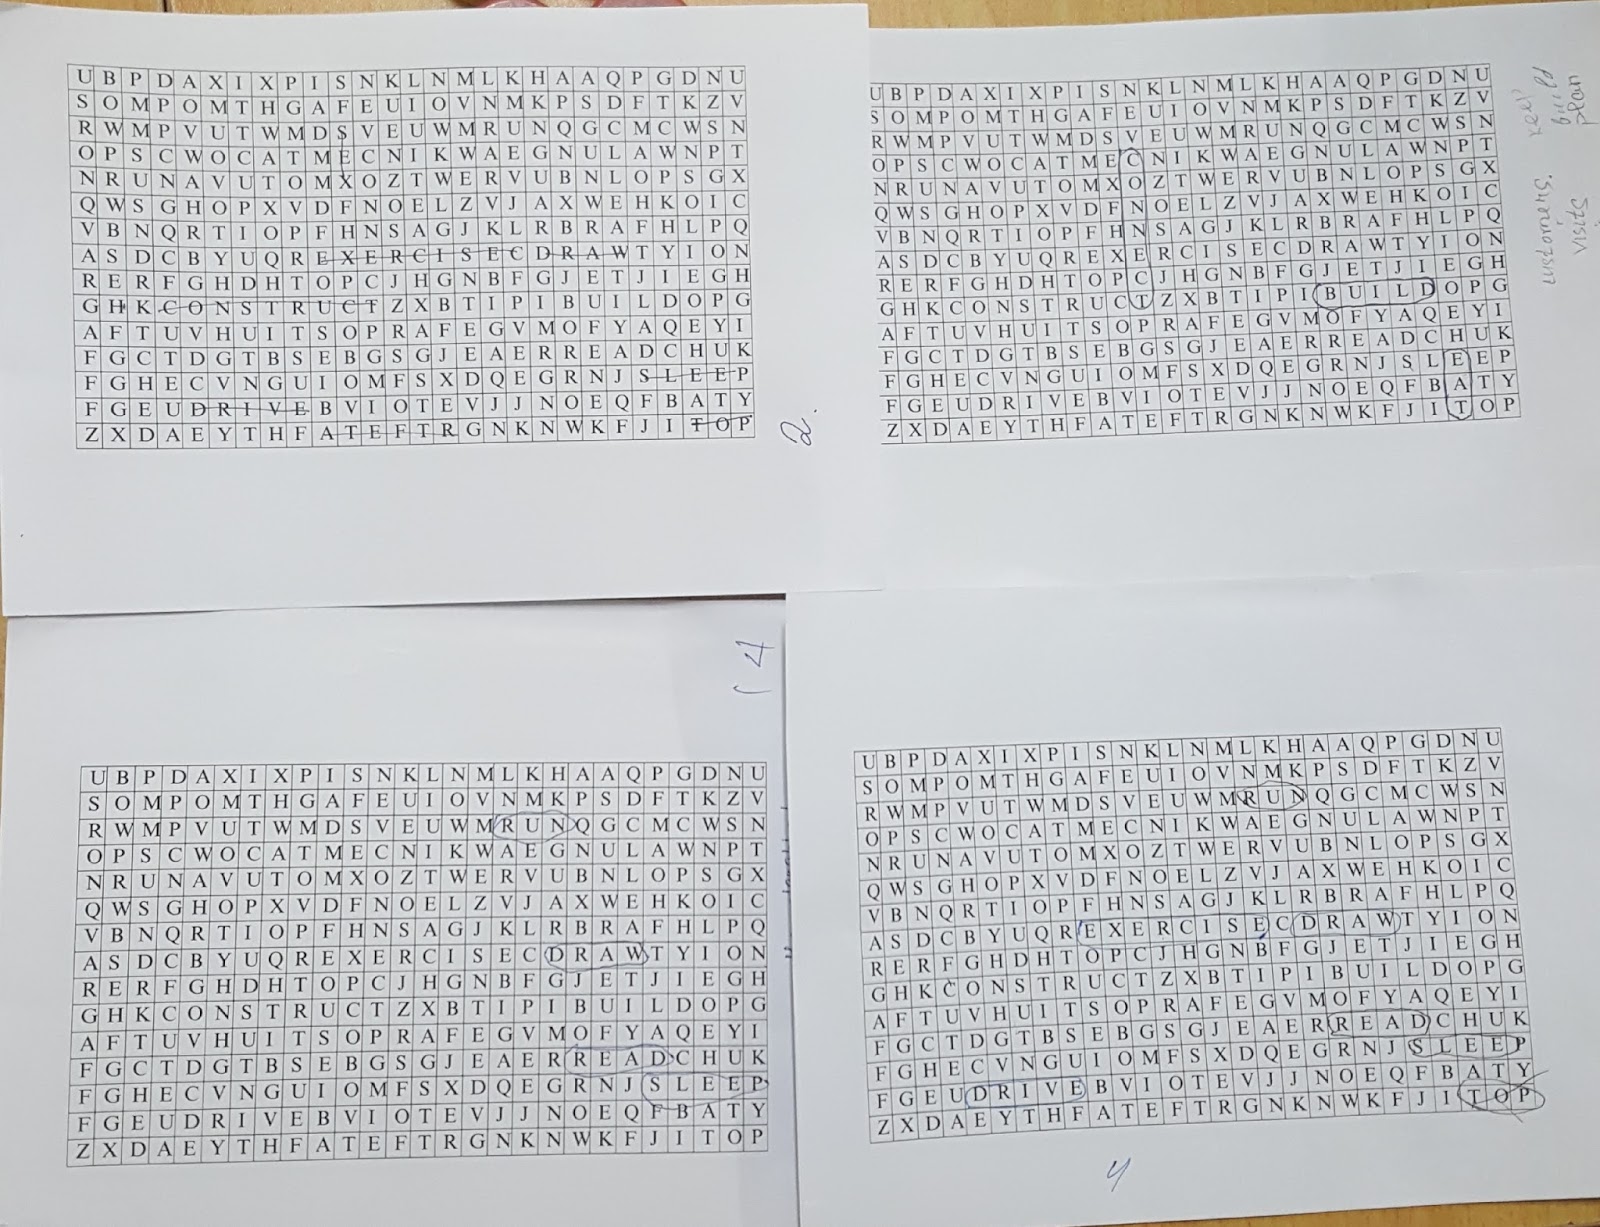 U B P D A X I X P I S N K L N M L K H A A Q P G D N U
S O M P O M T H G A F E U I O V N M K P S D F T K Z V
R W M P V U T W M D S V E U W M R U N Q G C M C W S N
O P S C W O C A T M E C N I K W A E G N U L A W N P T
N R U N A V U T O M X O Z T W E R V U B N L O P S G X
Q W S G H O P X V D F N O E L Z V J A X W E H K O I C
V B N Q R T I O P F H N S A G J K L R B R A F H L P Q
A S D C B Y U Q R E X E R C I S E C D R A W T Y I O N
R E R F G H D H T O P C J H G N B F G J E T J I E G H
G H K C O N S T R U C T Z X B T I P I B U I L D O P G
A F T U V H U I T S O P R A F E G V M O F Y A Q E Y I
F G C T D G T B S E B G S G J E A E R R E A D C H U K
F G H E C V N G U I O M F S X D Q E G R N J S L E E P
F G E U D R I V E B V I O T E V J J N O E Q F B A T Y
Z X D A E Y T H F A T E F T R G N K N W K F J I T O P
2.
U B P D A X I X P I S N K L N M L K H A A Q P G D N U
S O M P O M T H G A F E U I O V N M K P S D F T K Z V
R W M P V U T W M D S V E U W M R U N Q G C M C W S N
O P S C W O C A T M E C N I K W A E G N U L A W N P T
N R U N A V U T O M X O Z T W E R V U B N L O P S G X
Q W S G H O P X V D F N O E L Z V J A X W E H K O I C
V B N Q R T I O P F H N S A G J K L R B R A F H L P Q
A S D C B Y U Q R E X E R C I S E C D R A W T Y I O N
R E R F G H D H T O P C J H G N B F G J E T J I E G H
G H K C O N S T R U C T Z X B T I P I B U I L D O P G
A F T U V H U I T S O P R A F E G V M O F Y A Q E Y I
F G C T D G T B S E B G S G J E A E R R E A D C H U K
F G H E C V N G U I O M F S X D Q E G R N J S L E E P
F G E U D R I V E B V I O T E V J J N O E Q F B A T Y
Z X D A E Y T H F A T E F T R G N K N W K F J I T O P
customers. keep
build
visit plan
4
U B P D A X I X P I S N K L N M L K H A A Q P G D N U
S O M P O M T H G A F E U I O V N M K P S D F T K Z V
R W M P V U T W M D S V E U W M R U N Q G C M C W S N
O P S C W O C A T M E C N I K W A E G N U L A W N P T
N R U N A V U T O M X O Z T W E R V U B N L O P S G X
Q W S G H O P X V D F N O E L Z V J A X W E H K O I C
V B N Q R T I O P F H N S A G J K L R B R A F H L P Q
A S D C B Y U Q R E X E R C I S E C D R A W T Y I O N
R E R F G H D H T O P C J H G N B F G J E T J I E G H
G H K C O N S T R U C T Z X B T I P I B U I L D O P G
A F T U V H U I T S O P R A F E G V M O F Y A Q E Y I
F G C T D G T B S E B G S G J E A E R R E A D C H U K
F G H E C V N G U I O M F S X D Q E G R N J S L E E P
F G E U D R I V E B V I O T E V J J N O E Q F B A T Y
Z X D A E Y T H F A T E F T R G N K N W K F J I T O P
U B P D A X I X P I S N K L N M L K H A A Q P G D N U
S O M P O M T H G A F E U I O V N M K P S D F T K Z V
R W M P V U T W M D S V E U W M R U N Q G C M C W S N
O P S C W O C A T M E C N I K W A E G N U L A W N P T
N R U N A V U T O M X O Z T W E R V U B N L O P S G X
Q W S G H O P X V D F N O E L Z V J A X W E H K O I C
V B N Q R T I O P F H N S A G J K L R B R A F H L P Q
A S D C B Y U Q R E X E R C I S E C D R A W T Y I O N
R E R F G H D H T O P C J H G N B F G J E T J I E G H
G H K C O N S T R U C T Z X B T I P I B U I L D O P G
A F T U V H U I T S O P R A F E G V M O F Y A Q E Y I
F G C T D G T B S E B G S G J E A E R R E A D C H U K
F G H E C V N G U I O M F S X D Q E G R N J S L E E P
F G E U D R I V E B V I O T E V J J N O E Q F B A T Y
Z X D A E Y T H F A T E F T R G N K N W K F J I T O P
4